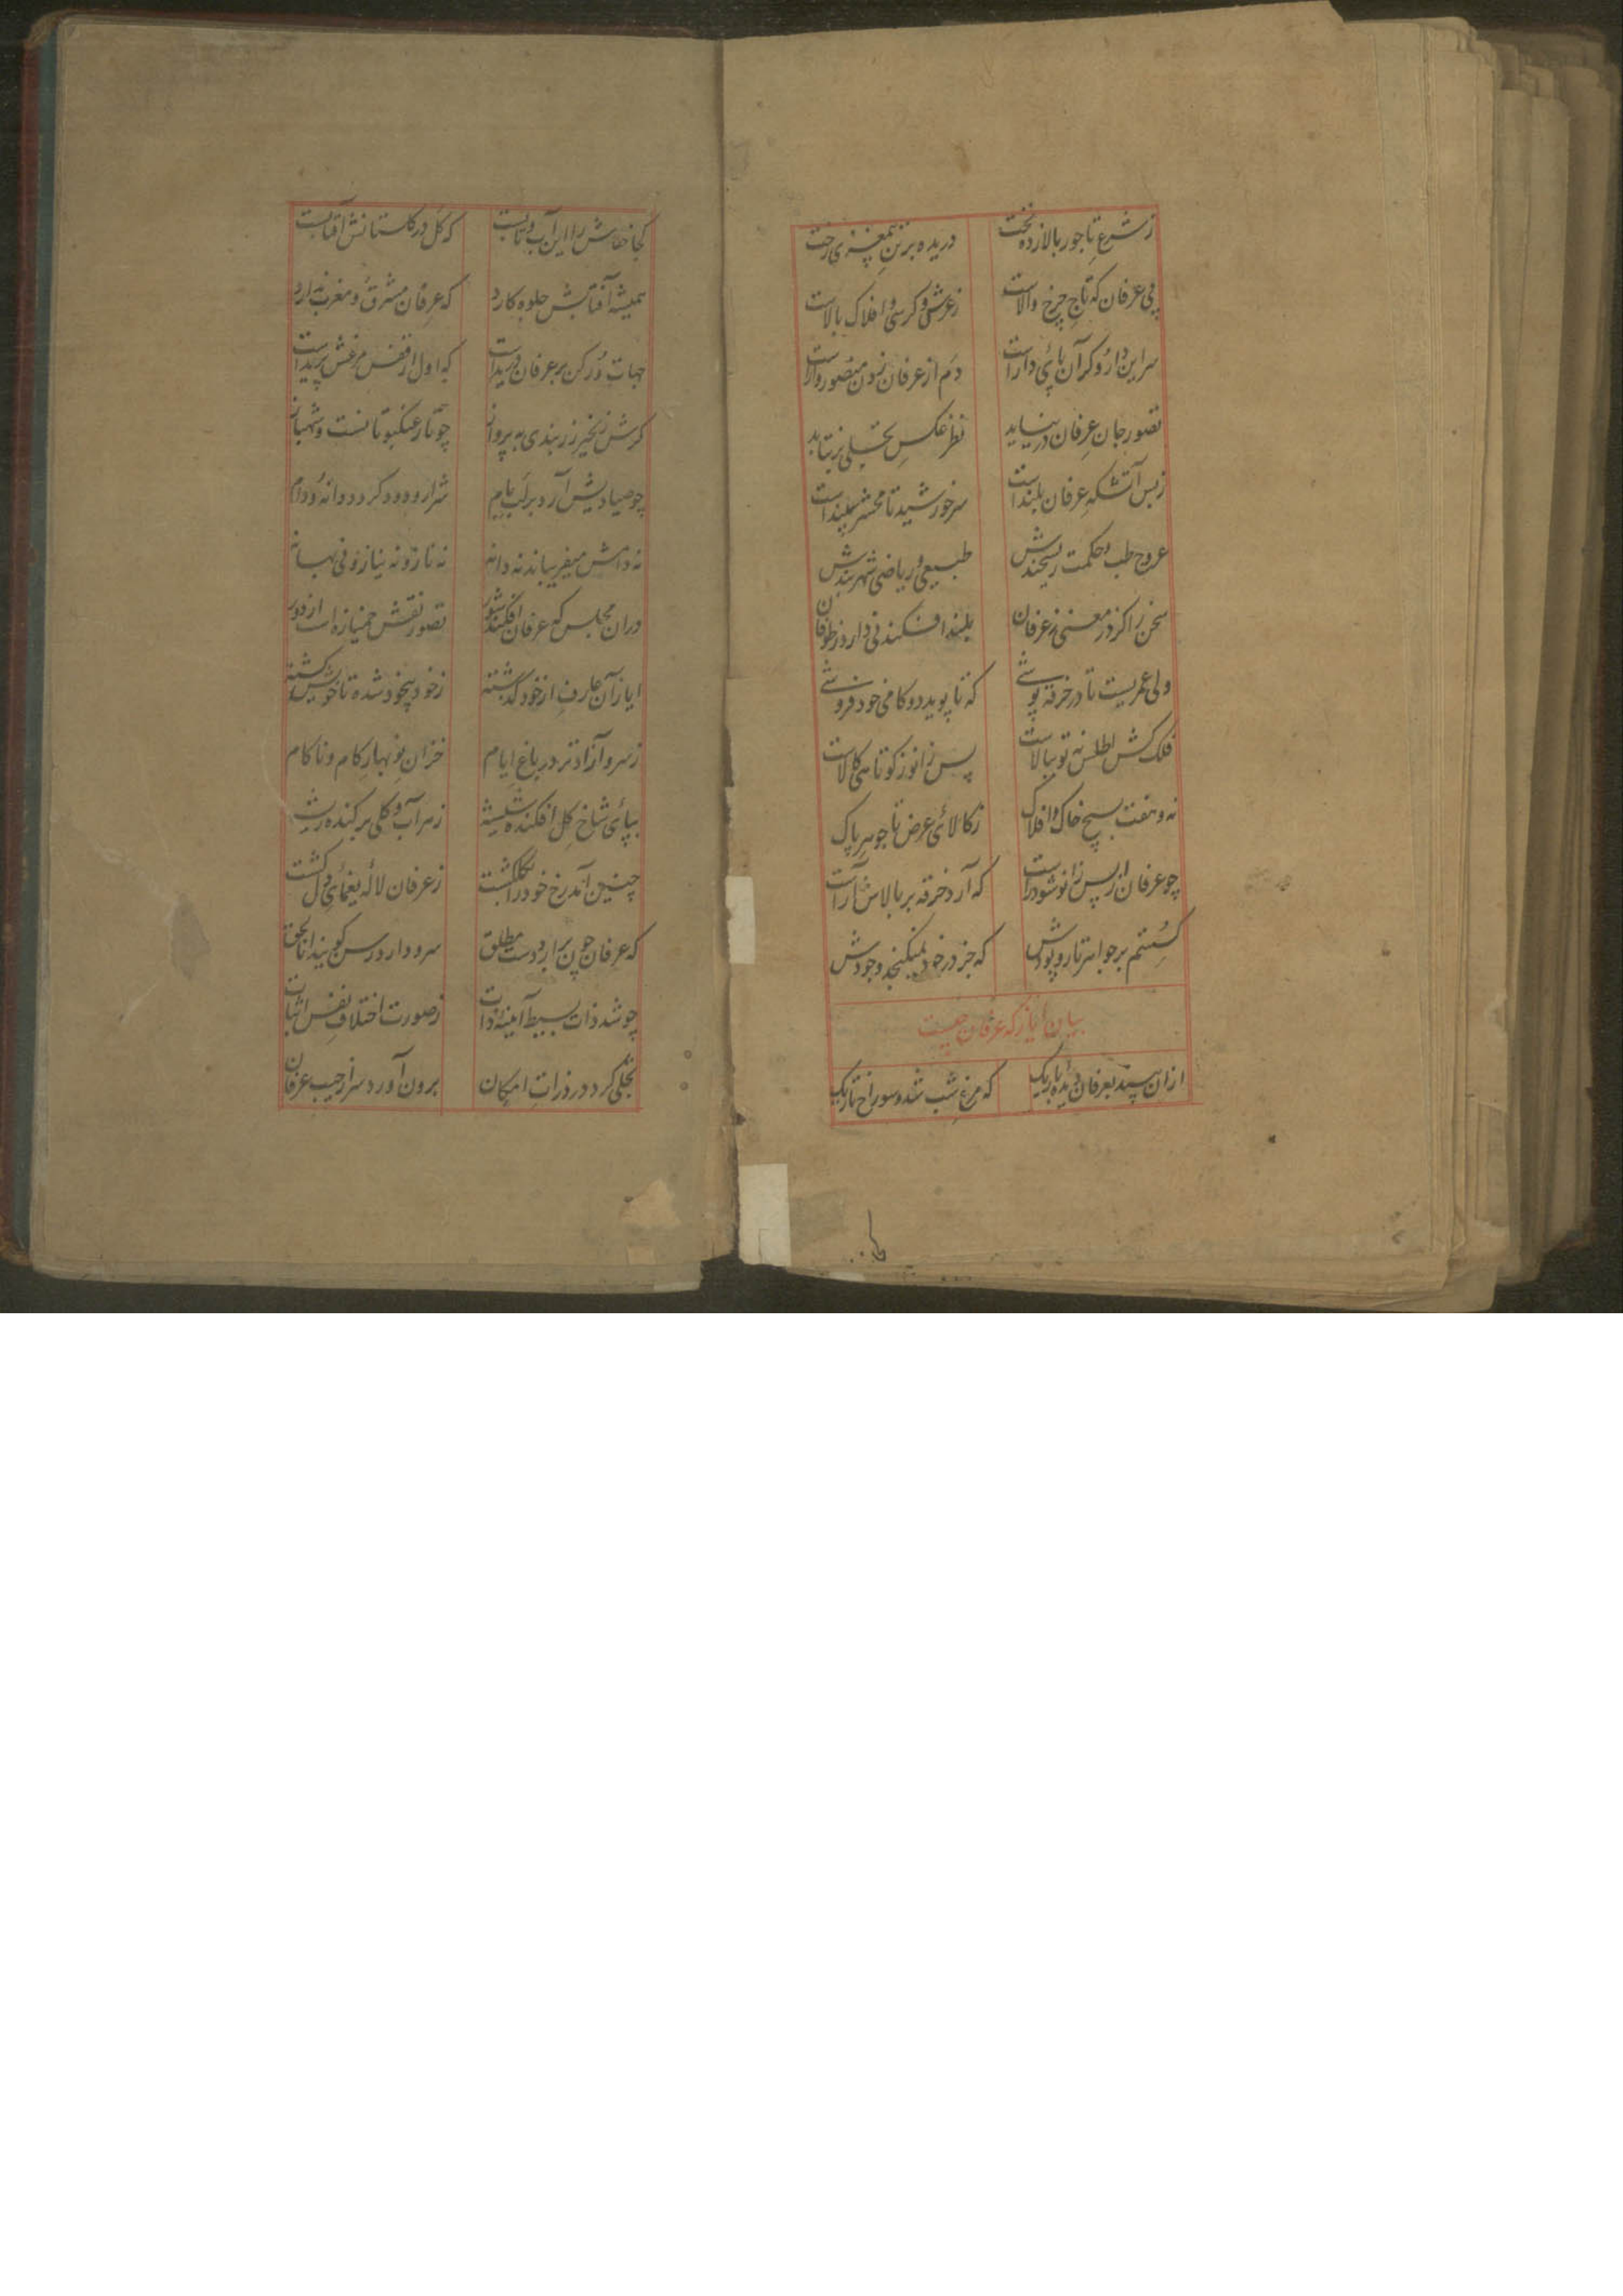 ز شرع تاجور بالا زده تخت
دریده بر تن بیمغزی رخت
پی عرفان که تاج چرخ والاست
ز عرش و کرسی و افلاک بالاست
سر این دار و کر آن پای دار است
دم از عرفان زدن منصور وار است
تصور جان عرفان در نیاید
نظر عکس تجلی بر نتابد
ز بس آتشکه عرفان بلند است
سر خورشید تا محشر سپند است
عروج طب و حکمت ریشخندش
طبیعی و ریاضی شهر بندش
سخن را کز در معنی ز عرفان
بلند افکند نی دار و ز طوفان
ولی عمریست تا در خرقه پوشی
که تا پوید دو کامی خود فروشی
فلک کش اطلس نه تو ببالاست
پس زانو ز کوتاهی کالاست
نه و هفت بسیج خاک و افلاک
ز کالای عرض تا جوهر پاک
چو عرفان از پس زانو شود راست
که آرد خرقه بر بالاش آراست
کستم بر جواهر تار و پودش
که جز در خود نمیکنجد وجودش
بیان ایاز که عرفان چیست
از آن سپید بعرفان دیده باریک
که مرغ شب شد و سوراخ تاریک
کجا خفاش را این آب و تابست
که کل در کلستانش آفتابست
همیشه آفتابش جلوه کارد
که عرفان مشرق و مغرب ندارد
جهات دور کن بر عرفان دریداست
که اول از قفس مرغش پریداست
کرش زنجیر زر بندی به پرواز
چو تار عنکبوتانست و شهباز
چو صیادیش آرد بر لب بام
شرار و دود کردد دانه و دام
نه دامش میفریباند نه دانه
نه ناز و نه نیاز و نی بهانه
در آن مجلس که عرفان افکند شور
تصور نقش خمیازه است از دور
ایاز آن عارف از خود گذشته
ز خود بیخود شده تا خویش کشته
ز سرو آزاد تر در باغ ایام
خزان نوبهار کام و ناکام
بپای شاخ کل افکنده شیشه
ز سر آب و کلی بر کنده ریشه
چنین آمد رخ خود را بکلکشت
ز عرفان لاله یغمای دل کشت
که عرفان چون برآرد دست مطلق
سر و دار و رسن کویند انا الحق
چو شد ذات بسیط آئینه ذات
ز صورت اختلاف نفس اثبات
تجلی کرد در ذرات امکان
برون آورد سر از جیب عرفان